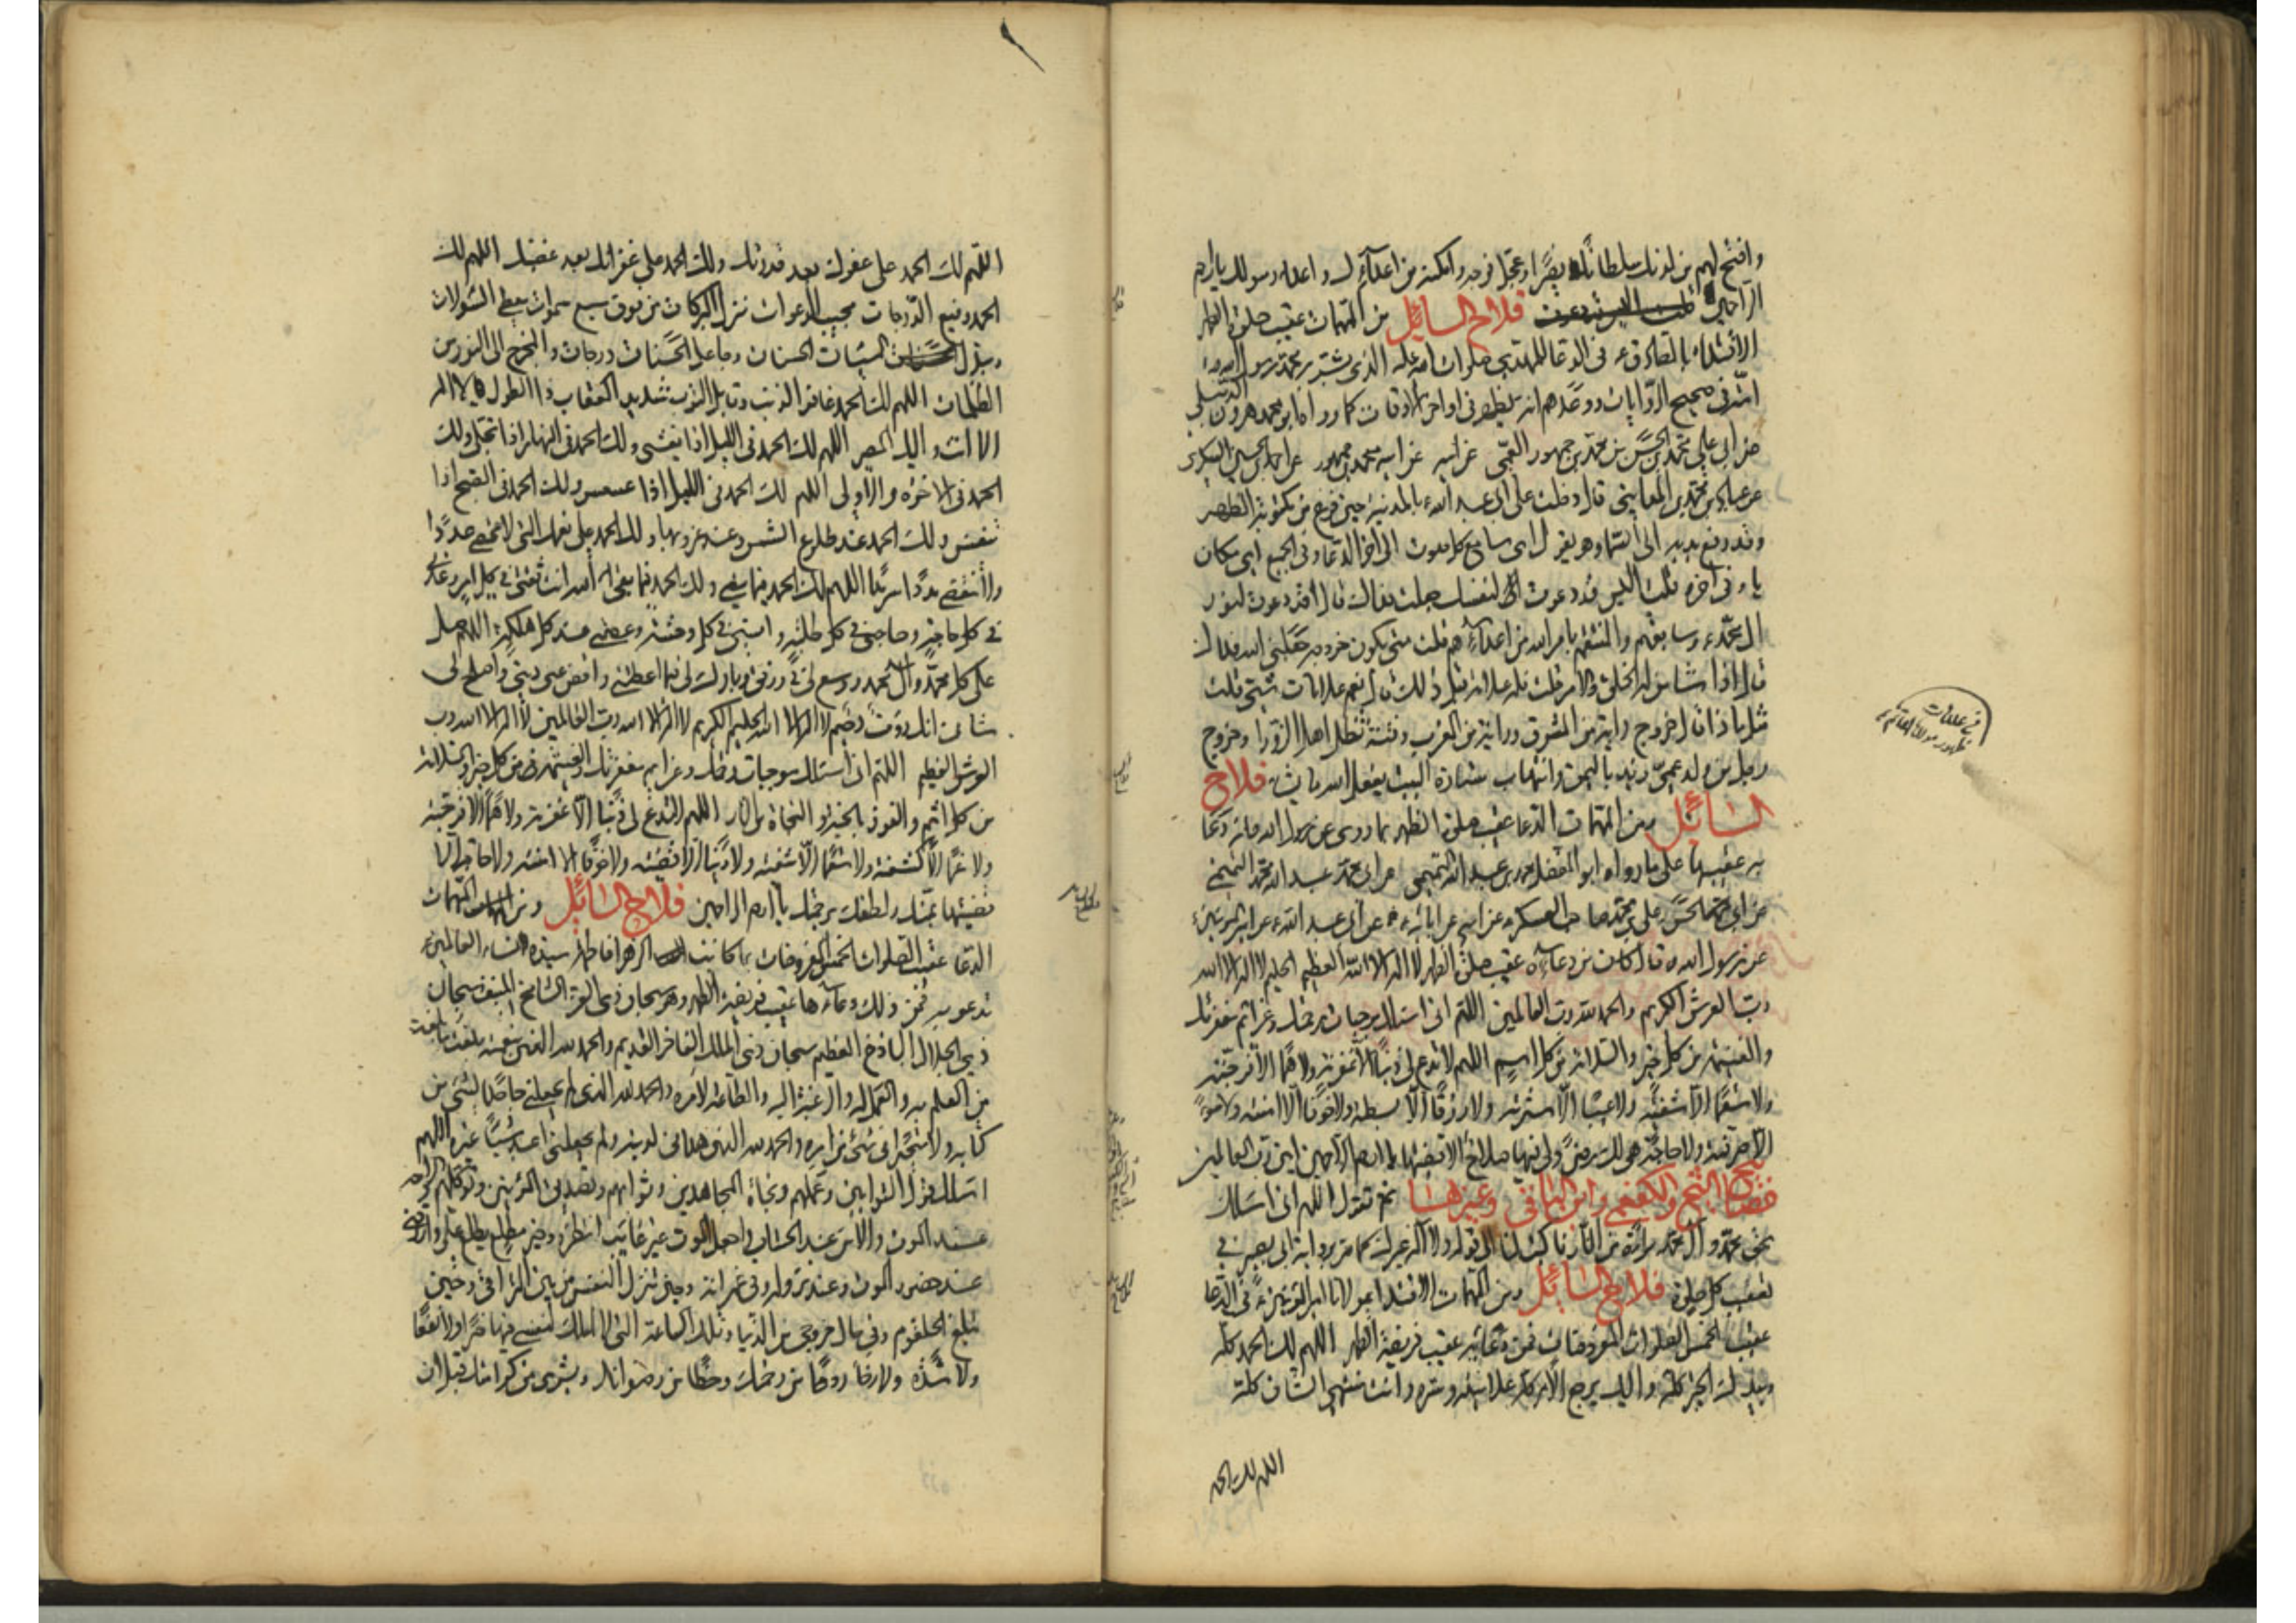 وافتح لهم من لدنك سلطانا نصيرا وعجل فرجه وامكنه من اعدآئك واعداء رسولك يا ارحم
الراحمين فلاح السائل من المهمات عقيب صلوة الظهر
الاقتداء بالصادق ع في الدعا للمهدي صلوات الله عليه الذي بشر به محمد رسول الله
امته في صحيح الروايات ووعدهم انه يظهر في اواخر الاوقات كما رواه ابو محمد هرون
عن ابي علي محمد بن الحسن بن محمد بن جمهور القمي عن ابيه عن ابيه محمد بن جمهور عن احمد بن الحسين السكري
عن عباد بن محمد المدايني قال دخلت على ابي عبد الله ع بالمدينة حين فرغ من مكتوبة الظهر
وقد رفع يديه الى السماء وهو يقول اي سامع كل صوت الى اخر الدعا وفي الجميع اي مكان
يا وفي اخره قلت اليس قد دعوت لنفسك جعلت فداك قال قد دعوت لنور
ال محمد ع وسابقهم والمنتقم بامر الله من اعدآئهم قلت متى يكون خروجه جعلني الله فداك
قال اذا شاء من له الخلق والامر قلت فله علامة قبل ذلك قال نعم علامات شتى قلت
مثل ماذا قال خروج راية من المشرق وراية من المغرب وفتنة تظل اهل الزوراء وخروج
رجل من ولد عمي زيد باليمن وانتهاب ستارة البيت يفعل الله ما يشاء فلاح
السائل ومن المهمات الدعا عقيب صلوة الظهر بما روى عن رسول الله فانه دعا
به عقيبها على ما رواه ابو المفضل محمد بن عبد الله التميمي عن ابي محمد عبد الله بن محمد التميمي
عن ابي الحسن علي بن محمد صاحب العسكر عن ابيه عن ابائه ع عن ابي عبد الله ع عن امير المؤمنين ع
عن رسول الله ص قال كان من دعآئه عقيب صلوة الظهر لا اله الا الله العظيم الحليم لا اله الا الله
رب العرش الكريم والحمد لله رب العالمين اللهم اني اسئلك موجبات رحمتك وعزائم مغفرتك
والغنيمة من كل خير والسلامة من كل اثم اللهم لا تدع لي ذنبا الا غفرته ولا هما الا فرجته
ولا سقما الا شفيته ولا عيبا الا سترته ولا رزقا الا بسطته ولا خوفا الا امنته ولا سوءا
الا صرفته ولا حاجة هي لك رضى ولي فيها صلاح الا قضيتها يا ارحم الراحمين امين رب العالمين
مصباح الشيخ والكفعمي وابن الباقي وغيرها ثم تقول اللهم اني اسئلك
بحق محمد وآل محمد برآءة من النار فاكتب لنا الى قوله ولا الى غيرك كما مر برواية ابي بصير في
تعقيب كل صلوة فلاح السائل ومن المهمات الاقتداء بمولانا امير المؤمنين ع في الدعا
عقيب الخمس الصلوات المفروضات فمن دعائه عقيب فريضة الظهر اللهم لك الحمد كله
وبيدك الخير كله واليك يرجع الامر كله علانيته وسره وانت منتهى الشان كله
اللهم لك الحمد
في علامات
ظهور مولانا القائم ع
اللهم لك الحمد على عفوك بعد قدرتك ولك الحمد على غفرانك بعد غضبك اللهم لك
الحمد رفيع الدرجات مجيب الدعوات منزل البركات من فوق سبع سموات معطي السؤلات
ومبدل السيئات الحسنات وجاعل الحسنات درجات والمخرج الى النور من
الظلمات اللهم لك الحمد غافر الذنب وقابل التوب شديد العقاب ذا الطول لا اله
الا انت واليك المصير اللهم لك الحمد في الليل اذا يغشى ولك الحمد في النهار اذا تجلى ولك
الحمد في الاخرة والاولى اللهم لك الحمد في الليل اذا عسعس ولك الحمد في الصبح اذا
تنفس ولك الحمد عند طلوع الشمس وعند غروبها ولك الحمد على نعمك التي لا تحصى عددا
ولا تنقضي مددا سرمدا اللهم لك الحمد فيما مضى ولك الحمد فيما بقي اللهم انت ثقتي في كل امر وعدتي
في كل حاجة وصاحبي في كل طلبة وانسي في كل وحشة وعصمتي عند كل هلكة اللهم صل
على محمد وآل محمد ووسع لي في رزقي وبارك لي فيما اعطيتني واقض عني ديني واصلح لي
شاني انك رؤف رحيم لا اله الا الله الحليم الكريم لا اله الا الله رب العالمين لا اله الا الله رب
العرش العظيم اللهم اني اسئلك موجبات رحمتك وعزائم مغفرتك والغنيمة من كل خير والسلامة
من كل اثم والفوز بالجنة والنجاة من النار اللهم لا تدع لي ذنبا الا غفرته ولا هما الا فرجته
ولا غما الا كشفته ولا سقما الا شفيته ولا دينا الا قضيته ولا خوفا الا امنته ولا حاجة الا
قضيتها بمنك ولطفك برحمتك يا ارحم الراحمين فلاح السائل ومن المهمات
الدعا عقيب الصلوات الخمس المفروضات بما كانت الزهرا فاطمة سيدة نساء العالمين ع
تدعو به فمن ذلك دعآءها عقيب فريضة الظهر وهو سبحان ذي العز الشامخ المنيف سبحان
ذي الجلال الباذخ العظيم سبحان ذي الملك الفاخر القديم والحمد لله الذي بنعمته بلغت ما بلغت
من العلم به والعمل له والرغبة اليه والطاعة لامره والحمد لله الذي لم يجعلني جاحدا لشيء من
كتابه ولا متحيرا في شيء من امره والحمد لله الذي هداني لدينه ولم يجعلني اعبد شيئا غيره اللهم
اني اسئلك قول التوابين وعملهم ونجاة المجاهدين وثوابهم وتصديق المؤمنين وتوكلهم والراحة
عند الموت والامن عند الحساب واجعل الموت خير غائب انتظره وخير مطلع يطلع علي وارزقني
عند حضور الموت وعند نزوله وفي غمراته وحين تنزل النفس من بين التراقي وحين
تبلغ الحلقوم وفي حال خروجي من الدنيا وتلك الساعة التي لا املك لنفسي فيها ضرا ولا نفعا
ولا شدة ولا رخاء روحا من رحمتك وحظا من رضوانك وبشرى من كرامتك قبل ان